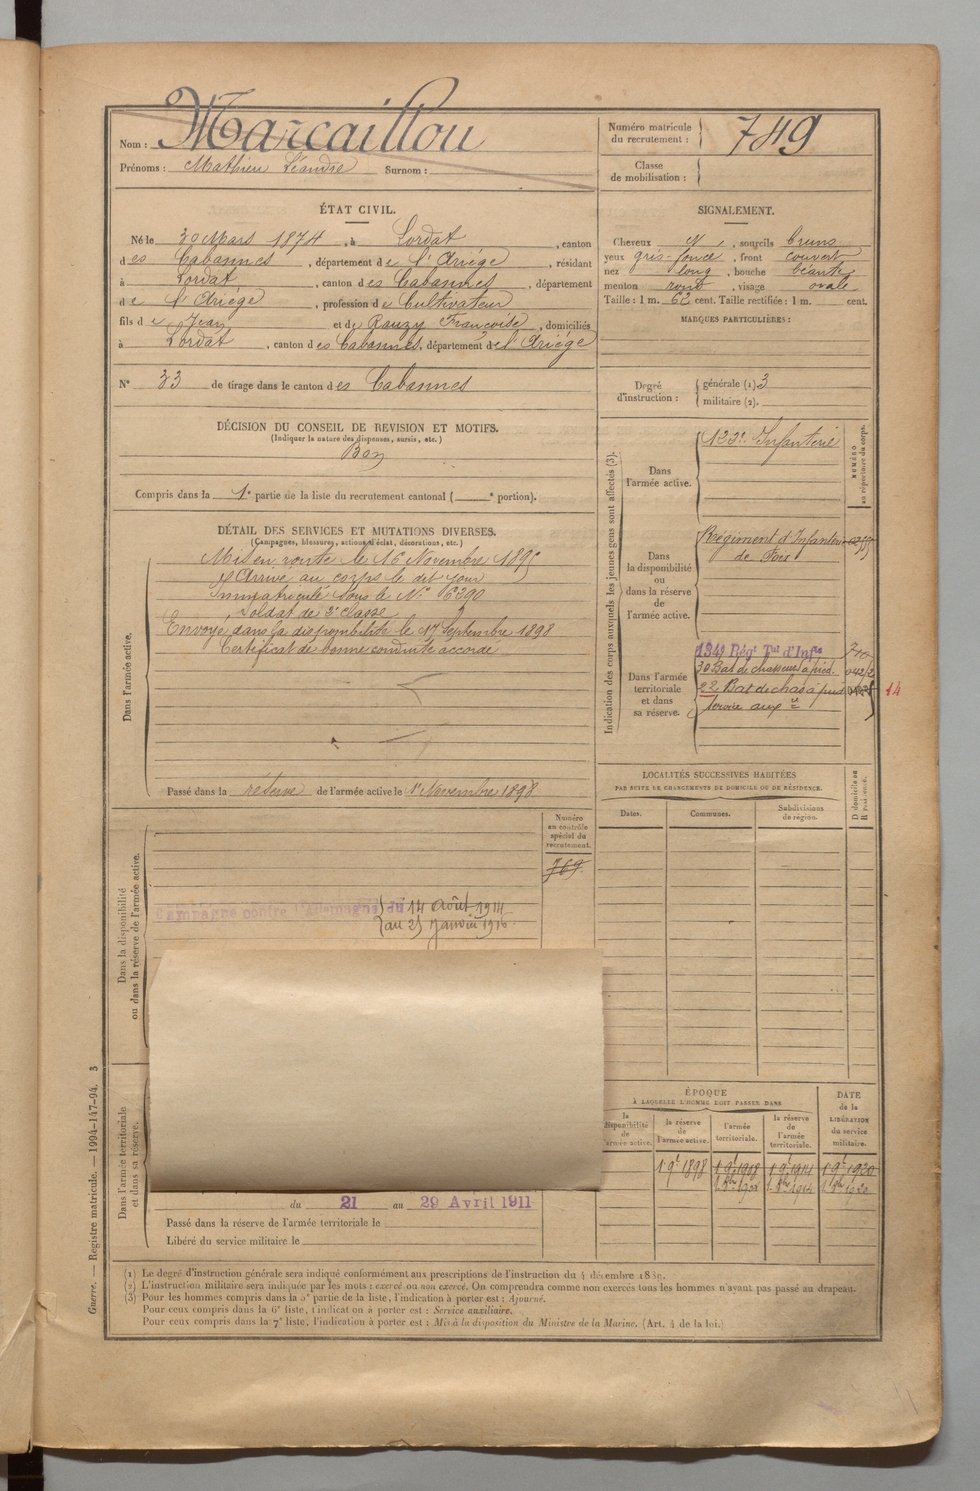 Nom : Marcaillou
Prénoms : Mathieu Léandre Surnom :
Numéro matricule du recrutement : 749
Classe de mobilisation :
ÉTAT CIVIL.
Né le 30 Mars 1874, à Lordat, canton
des Cabannes, département de l'Ariége, résidant
à Lordat, canton des Cabannes, département
de l'Ariége, profession de Cultivateur
fils de Jean et de Rauzy Françoise, domiciliés
à Lordat, canton des Cabannes, département de l'Ariége
N° 33 de tirage dans le canton des Cabannes
DÉCISION DU CONSEIL DE REVISION ET MOTIFS.
(Indiquer la nature des dispenses, sursis, etc.)
Bon
Compris dans la 1e partie de la liste du recrutement cantonal ( e portion).
DÉTAIL DES SERVICES ET MUTATIONS DIVERSES.
(Campagnes, blessures, actions d'éclat, décorations, etc.)
Dans l'armée active.
Mis en route le 16 Novembre 1895
Arrivé au corps le dit jour
Immatriculé sous le N° 6390
Soldat de 2e classe
Envoyé dans la disponibilité le 17 Septembre 1898
Certificat de bonne conduite accordé
Passé dans la réserve de l'armée active le 1er Novembre 1898
Dans la disponibilité
ou dans la réserve de l'armée active.
Numéro
au contrôle
spécial du
recrutement.
769
Campagne contre l'Allemagne du 14 Août 1914
au 25 Janvier 1916
Dans l'armée territoriale
et dans sa réserve.
du 21 au 29 Avril 1911
Passé dans la réserve de l'armée territoriale le
Libéré du service militaire le
SIGNALEMENT.
Cheveux , sourcils bruns
yeux gris-foncé, front couvert
nez long, bouche béante
menton rond, visage ovale
Taille : 1 m. 62 cent. Taille rectifiée : 1 m. cent.
MARQUES PARTICULIÈRES :
Degré d'instruction : générale (1) 3
militaire (2).
Indication des corps auxquels les jeunes gens sont affectés (3).
NUMÉRO
au répertoire du corps.
Dans
l'armée active.
Infanterie
Dans
la disponibilité
ou
dans la réserve
de
l'armée active.
Régiment d'Infanterie
de Foix
Dans l'armée
territoriale
et dans
sa réserve.
134e Régt Tal d'Infie
30 Bat de chasseurs à pied.
22 Bat de chas à pied
Service auxre
14
LOCALITÉS SUCCESSIVES HABITÉES
PAR SUITE DE CHANGEMENTS DE DOMICILE OU DE RÉSIDENCE.
Dates.
Communes.
Subdivisions
de région.
D domicile ou
R résidence.
ÉPOQUE
À LAQUELLE L'HOMME DOIT PASSER DANS
DATE
de la
LIBÉRATION
du service
militaire.
la
disponibilité
de
l'armée active.
la réserve
de
l'armée active.
l'armée
territoriale.
la réserve
de
l'armée
territoriale.
1 9e 1898
Guerre. — Registre matricule. — 1994-147-94. 3
(1) Le degré d'instruction générale sera indiqué conformément aux prescriptions de l'instruction du 4 décembre 1889.
(2) L'instruction militaire sera indiquée par les mots : exercé ou non exercé. On comprendra comme non exercés tous les hommes n'ayant pas passé au drapeau.
(3) Pour les hommes compris dans la 5e partie de la liste, l'indication à porter est : Ajourné.
Pour ceux compris dans la 6e liste, l'indication à porter est : Service auxiliaire.
Pour ceux compris dans la 7e liste, l'indication à porter est : Mis à la disposition du Ministre de la Marine. (Art. 4 de la loi.)